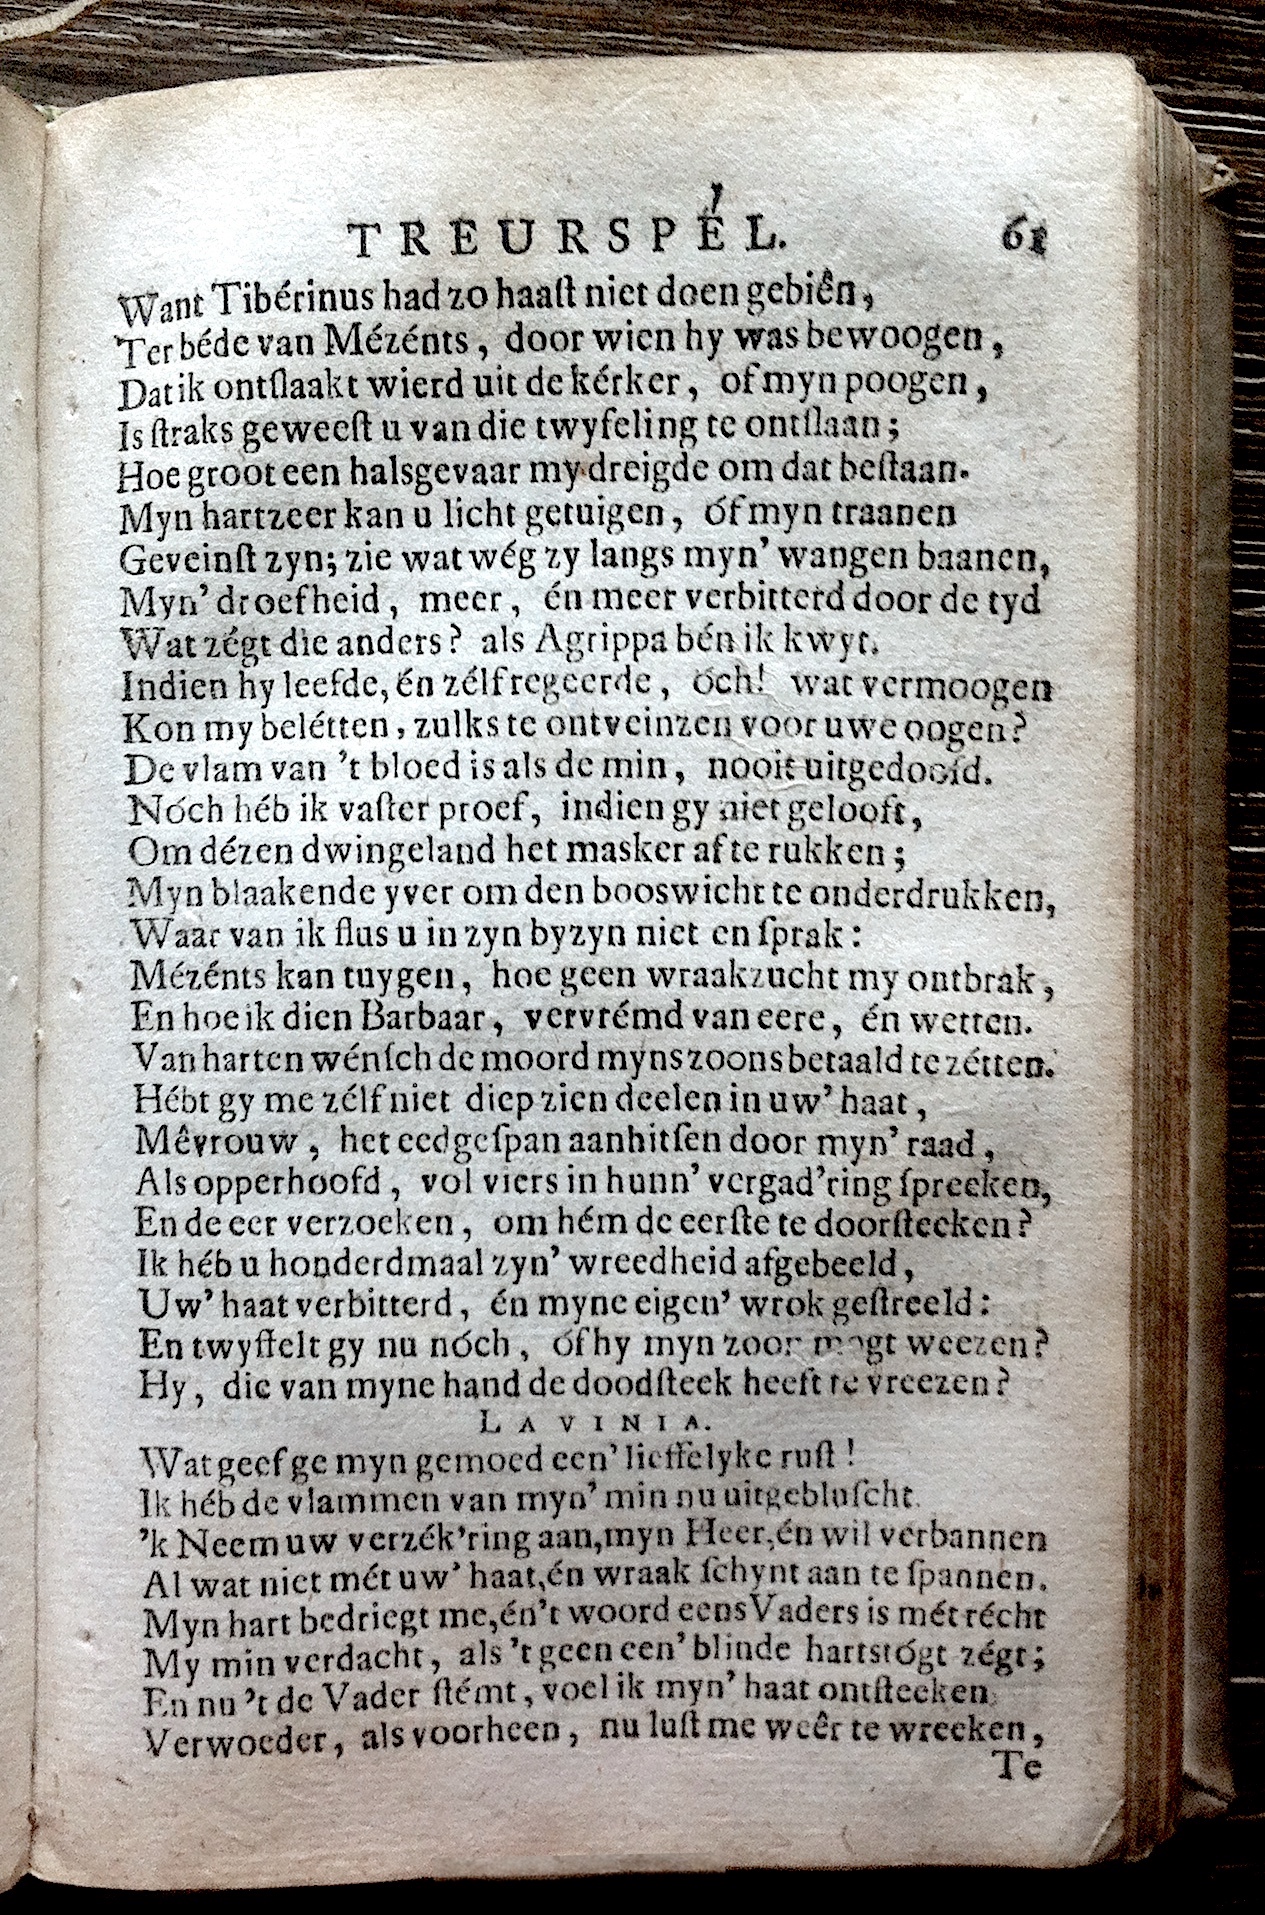 TREURSPÉL. 61
Want Tibérinus had zo haaſt niet doen gebiên,
Ter béde van Mézénts, door wien hy was bewoogen,
Dat ik ontſlaakt wierd uit de kérker, of myn poogen,
Is ſtraks geweeſt u van die twyfeling te ontſlaan;
Hoe groot een halsgevaar my dreigde om dat beſtaan.
Myn hartzeer kan u licht getuigen, óf myn traanen
Geveinſt zyn; zie wat wég zy langs myn' wangen baanen,
Myn' droefheid, meer, én meer verbitterd door de tyd
Wat zégt die anders? als Agrippa bén ik kwyt.
Indien hy leefde, én zélf regeerde, óch! wat vermoogen
Kon my belétten, zulks te ontveinzen voor uwe oogen?
De vlam van 't bloed is als de min, nooit uitgedoofd.
Nóch héb ik vaſter proef, indien gy niet gelooft,
Om dézen dwingeland het masker af te rukken;
Myn blaakende yver om den booswicht te onderdrukken,
Waar van ik flus u in zyn byzyn niet en ſprak:
Mézénts kan tuygen, hoe geen wraakzucht my ontbrak,
En hoe ik dien Barbaar, vervrémd van eere, én wetten.
Van harten wénſch de moord myns zoons betaald te zétten.
Hébt gy me zélf niet diep zien deelen in uw' haat,
Mêvrouw, het eedgeſpan aanhitſen door myn' raad,
Als opperhoofd, vol viers in hunn' vergad'ring ſpreeken,
En de eer verzoeken, om hém de eerſte te doorſteeken?
Ik héb u honderdmaal zyn' wreedheid afgebeeld,
Uw' haat verbitterd, én myne eigen' wrok geſtreeld:
En twyffelt gy nu nóch, óf hy myn zoon mogt weezen?
Hy, die van myne hand de doodſteek heeft te vreezen?
LAVINIA.
Wat geef ge myn gemoed een' lieffelyke ruſt!
Ik héb de vlammen van myn' min nu uitgebluſcht.
'k Neem uw verzék'ring aan, myn Heer, én wil verbannen
Al wat niet mét uw' haat, én wraak ſchynt aan te ſpannen.
Myn hart bedriegt me, én 't woord eens Vaders is mét récht
My min verdacht, als 't geen een' blinde hartstógt zégt;
En nu 't de Vader ſtémt, voel ik myn' haat ontſteeken
Verwoeder, als voorheen, nu luſt me weêr te wreeken,
Te